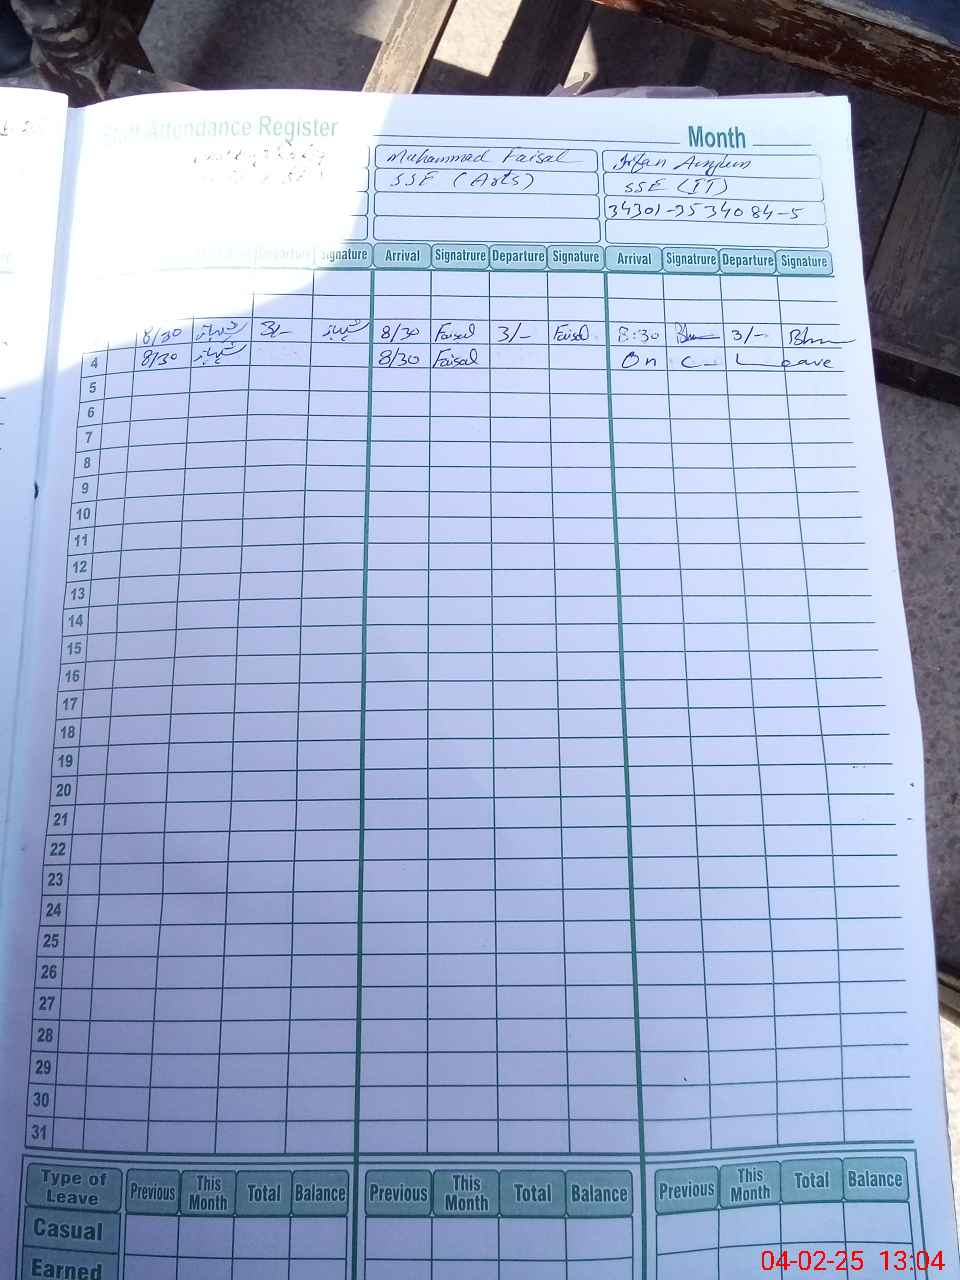 Staff Attendance Register
Month
Muhammad Faisal
Irfan Anjum
SSE (Arts)
SSE (IT)
34301-9534084-5
Departure Signature Arrival Signatrure Departure Signature Arrival Signatrure Departure Signature
8/30 شہباز 3/- شہباز 8/30 Faisal 3/- Faisal 8:30 3/-
4 8/30 شہباز 8/30 Faisal On C- Leave
5
6
7
8
9
10
11
12
13
14
15
16
17
18
19
20
21
22
23
24
25
26
27
28
29
30
31
Type of Leave Previous This Month Total Balance Previous This Month Total Balance Previous This Month Total Balance
Casual
Earned
04-02-25 13:04